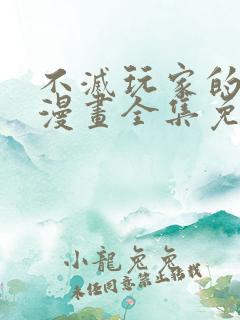 不滅玩家的
漫畫全集免
小龍兔兔
未经同意禁止转载